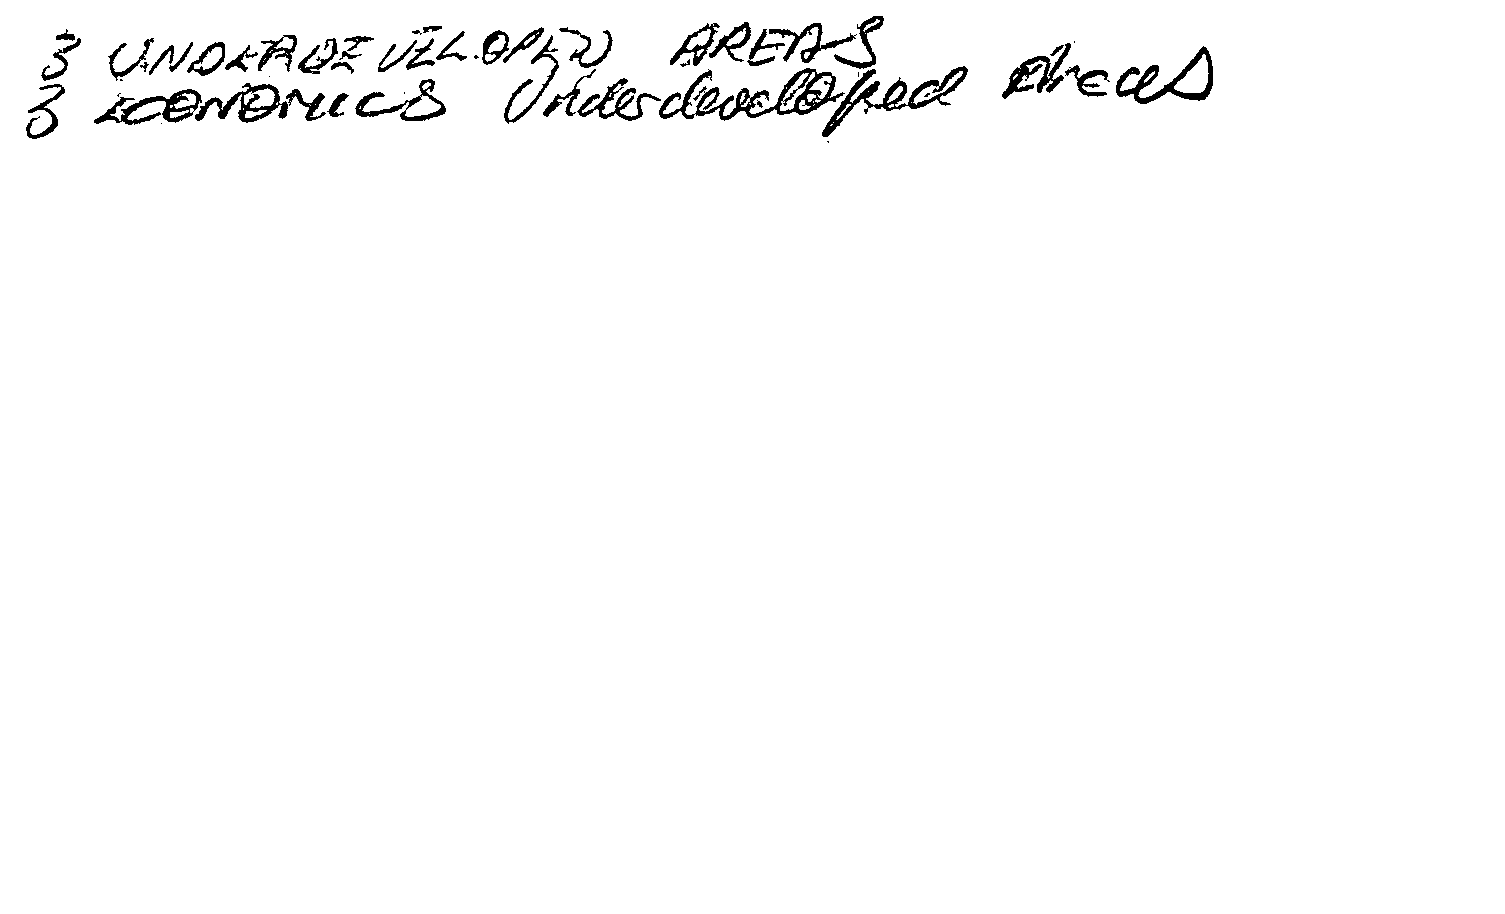 3 UNDERDEVELOPED AREAS
3 ECONOMICS Underdeveloped Areas